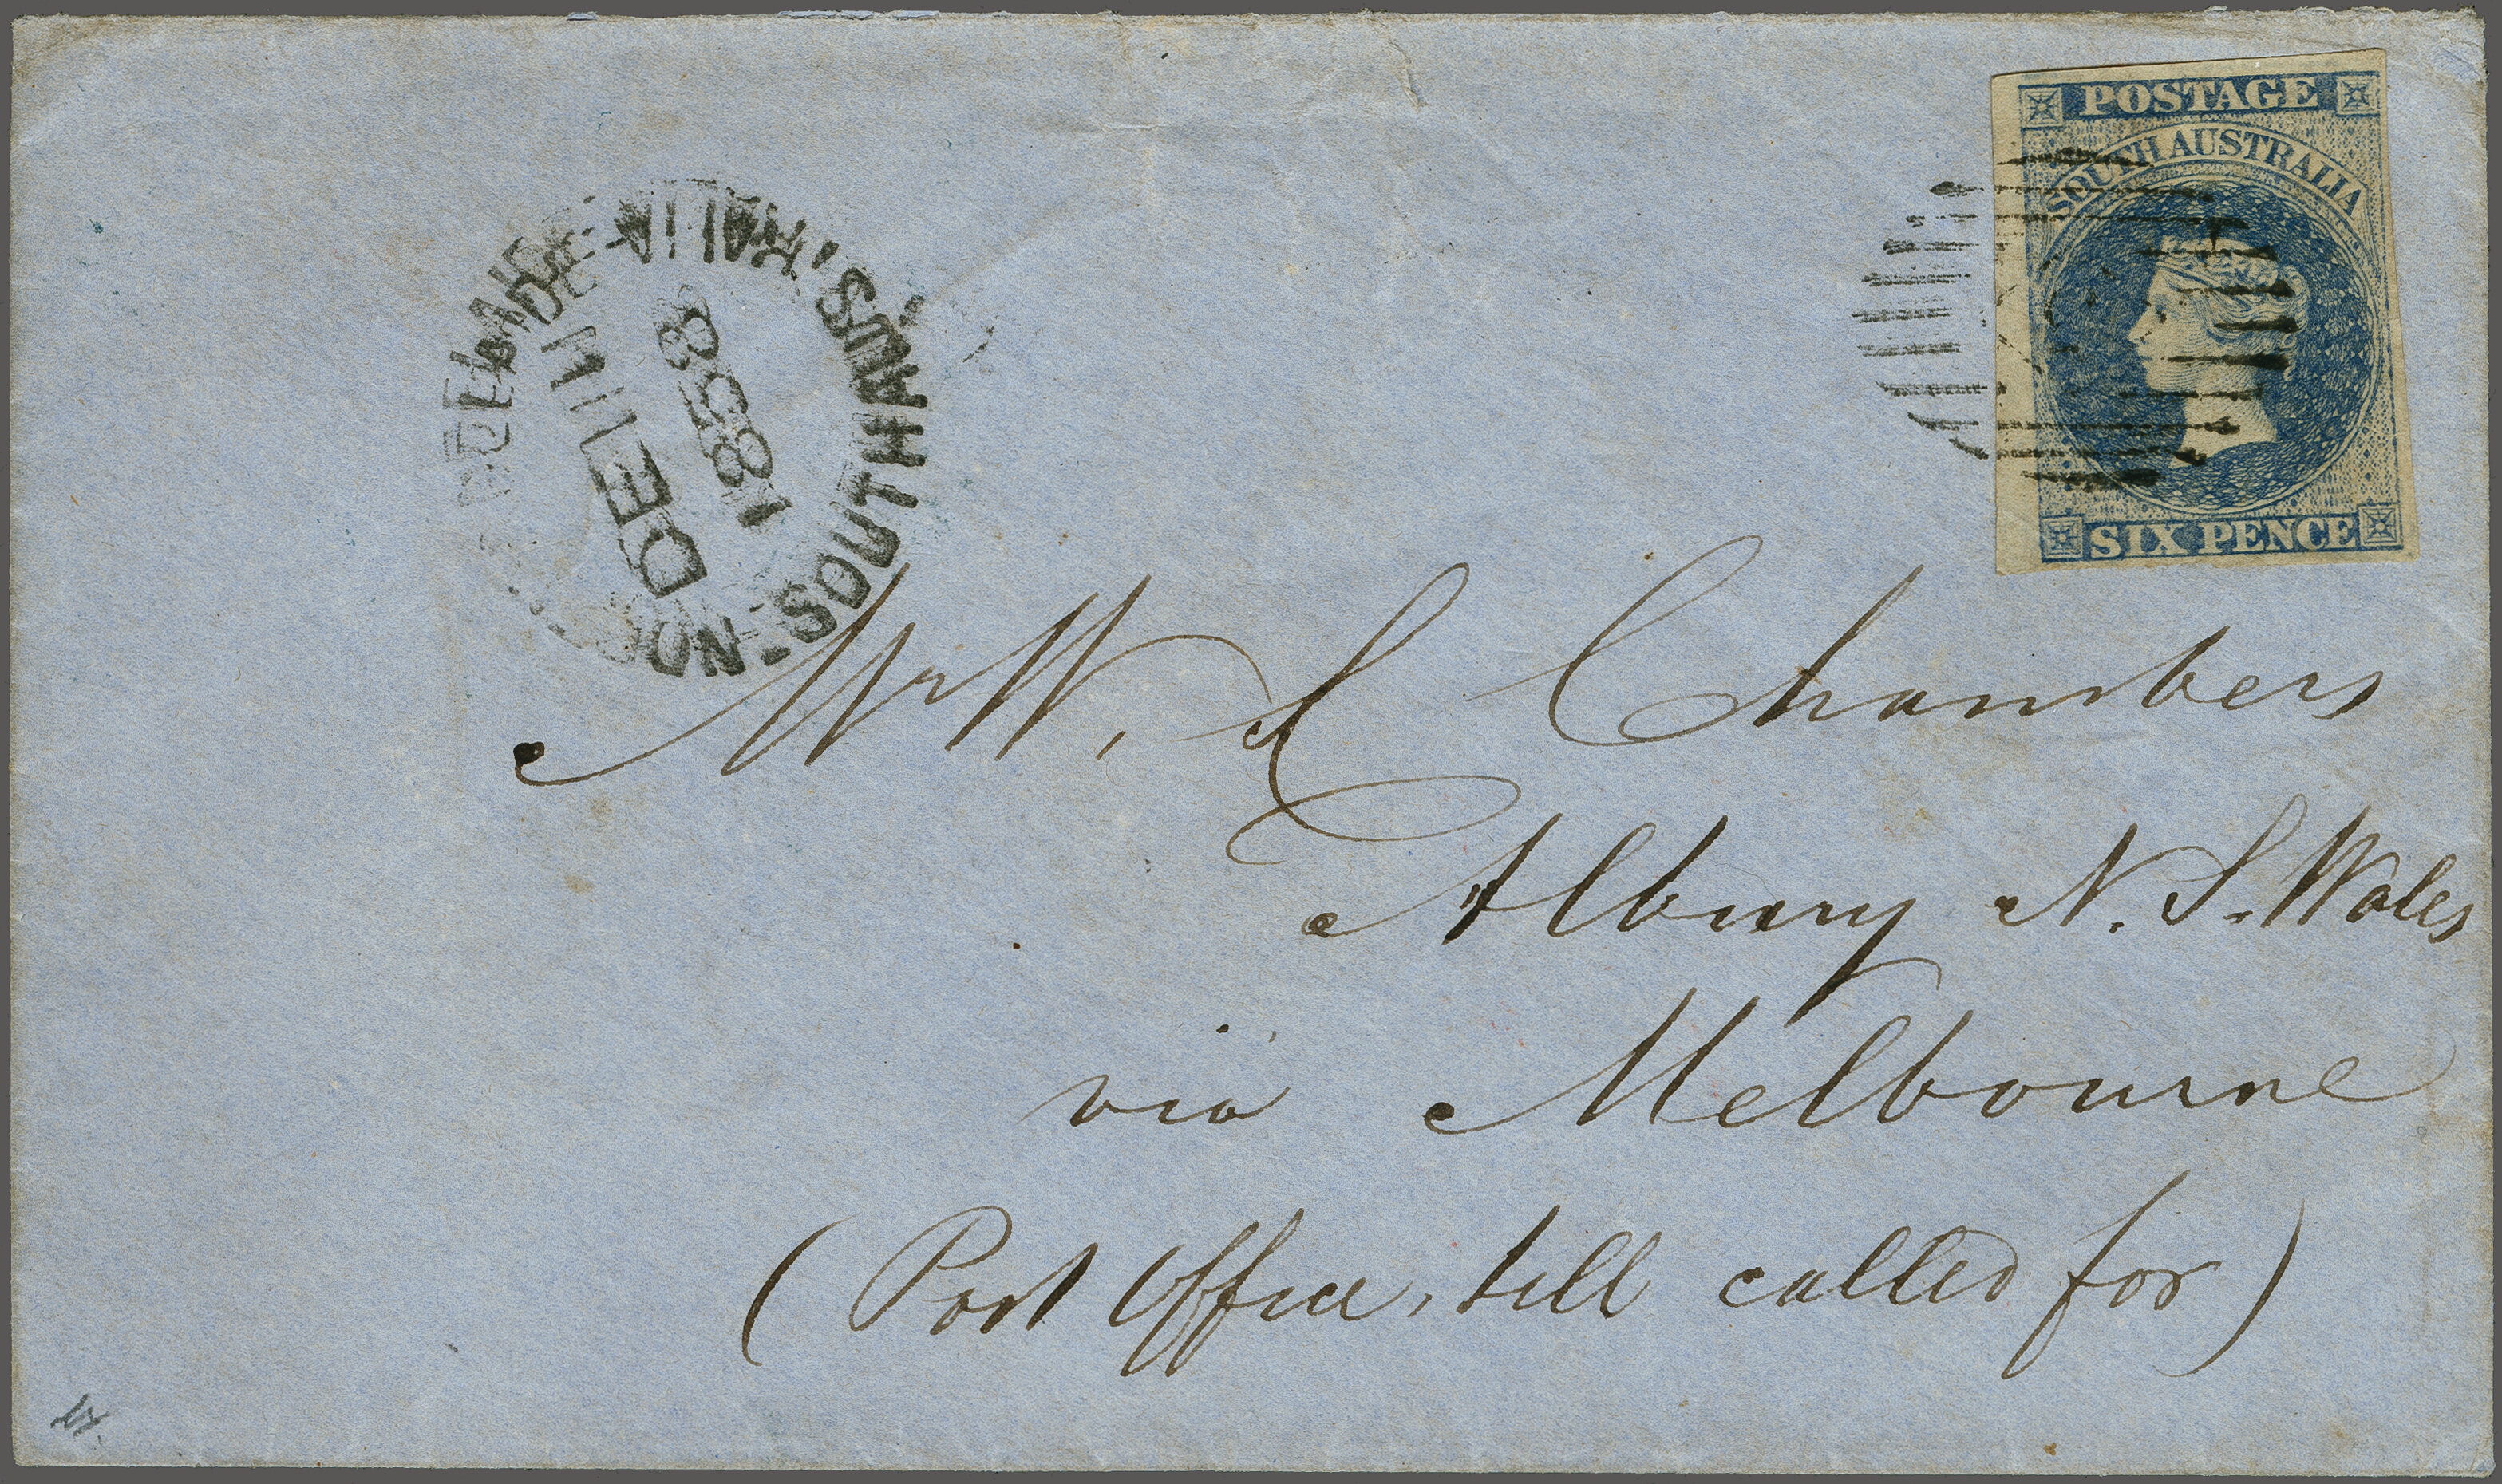 POSTAGE
SOUTH AUSTRALIA
SIX PENCE
SOUTH AUS
DE 11
1858
Mr W. L Chambers
Albury N. S. Wales
via Melbourne
(Post Office, till called for)